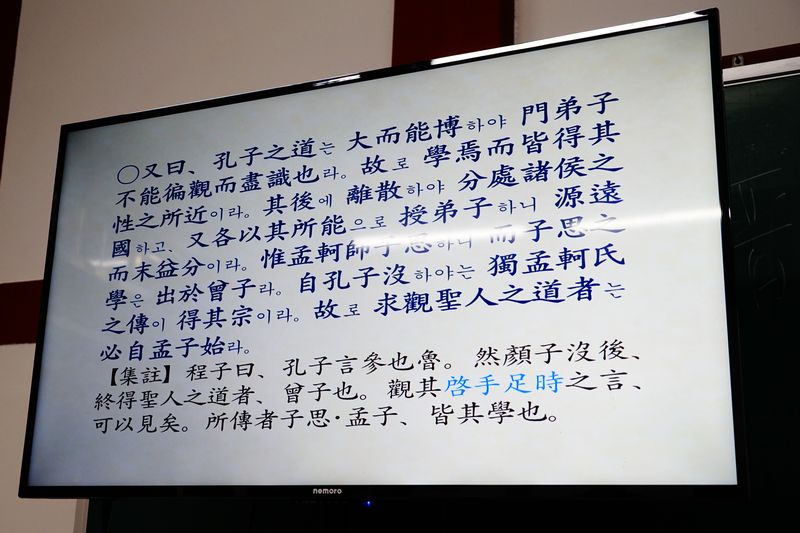 ○又曰、孔子之道는 大而能博하야 門弟子
不能徧觀而盡識也라。故로 學焉而皆得其
性之所近이라。其後에 離散하야 分處諸侯之
國하고、又各以其所能으로 授弟子하니 源遠
而末益分이라。惟孟軻師子思하니 而子思之
學은 出於曾子라。自孔子沒하야는 獨孟軻氏
之傳이 得其宗이라。故로 求觀聖人之道者는
必自孟子始라。
【集註】程子曰、孔子言參也魯。然顔子沒後、
終得聖人之道者、曾子也。觀其啓手足時之言、
可以見矣。所傳者子思·孟子、皆其學也。
nemoro